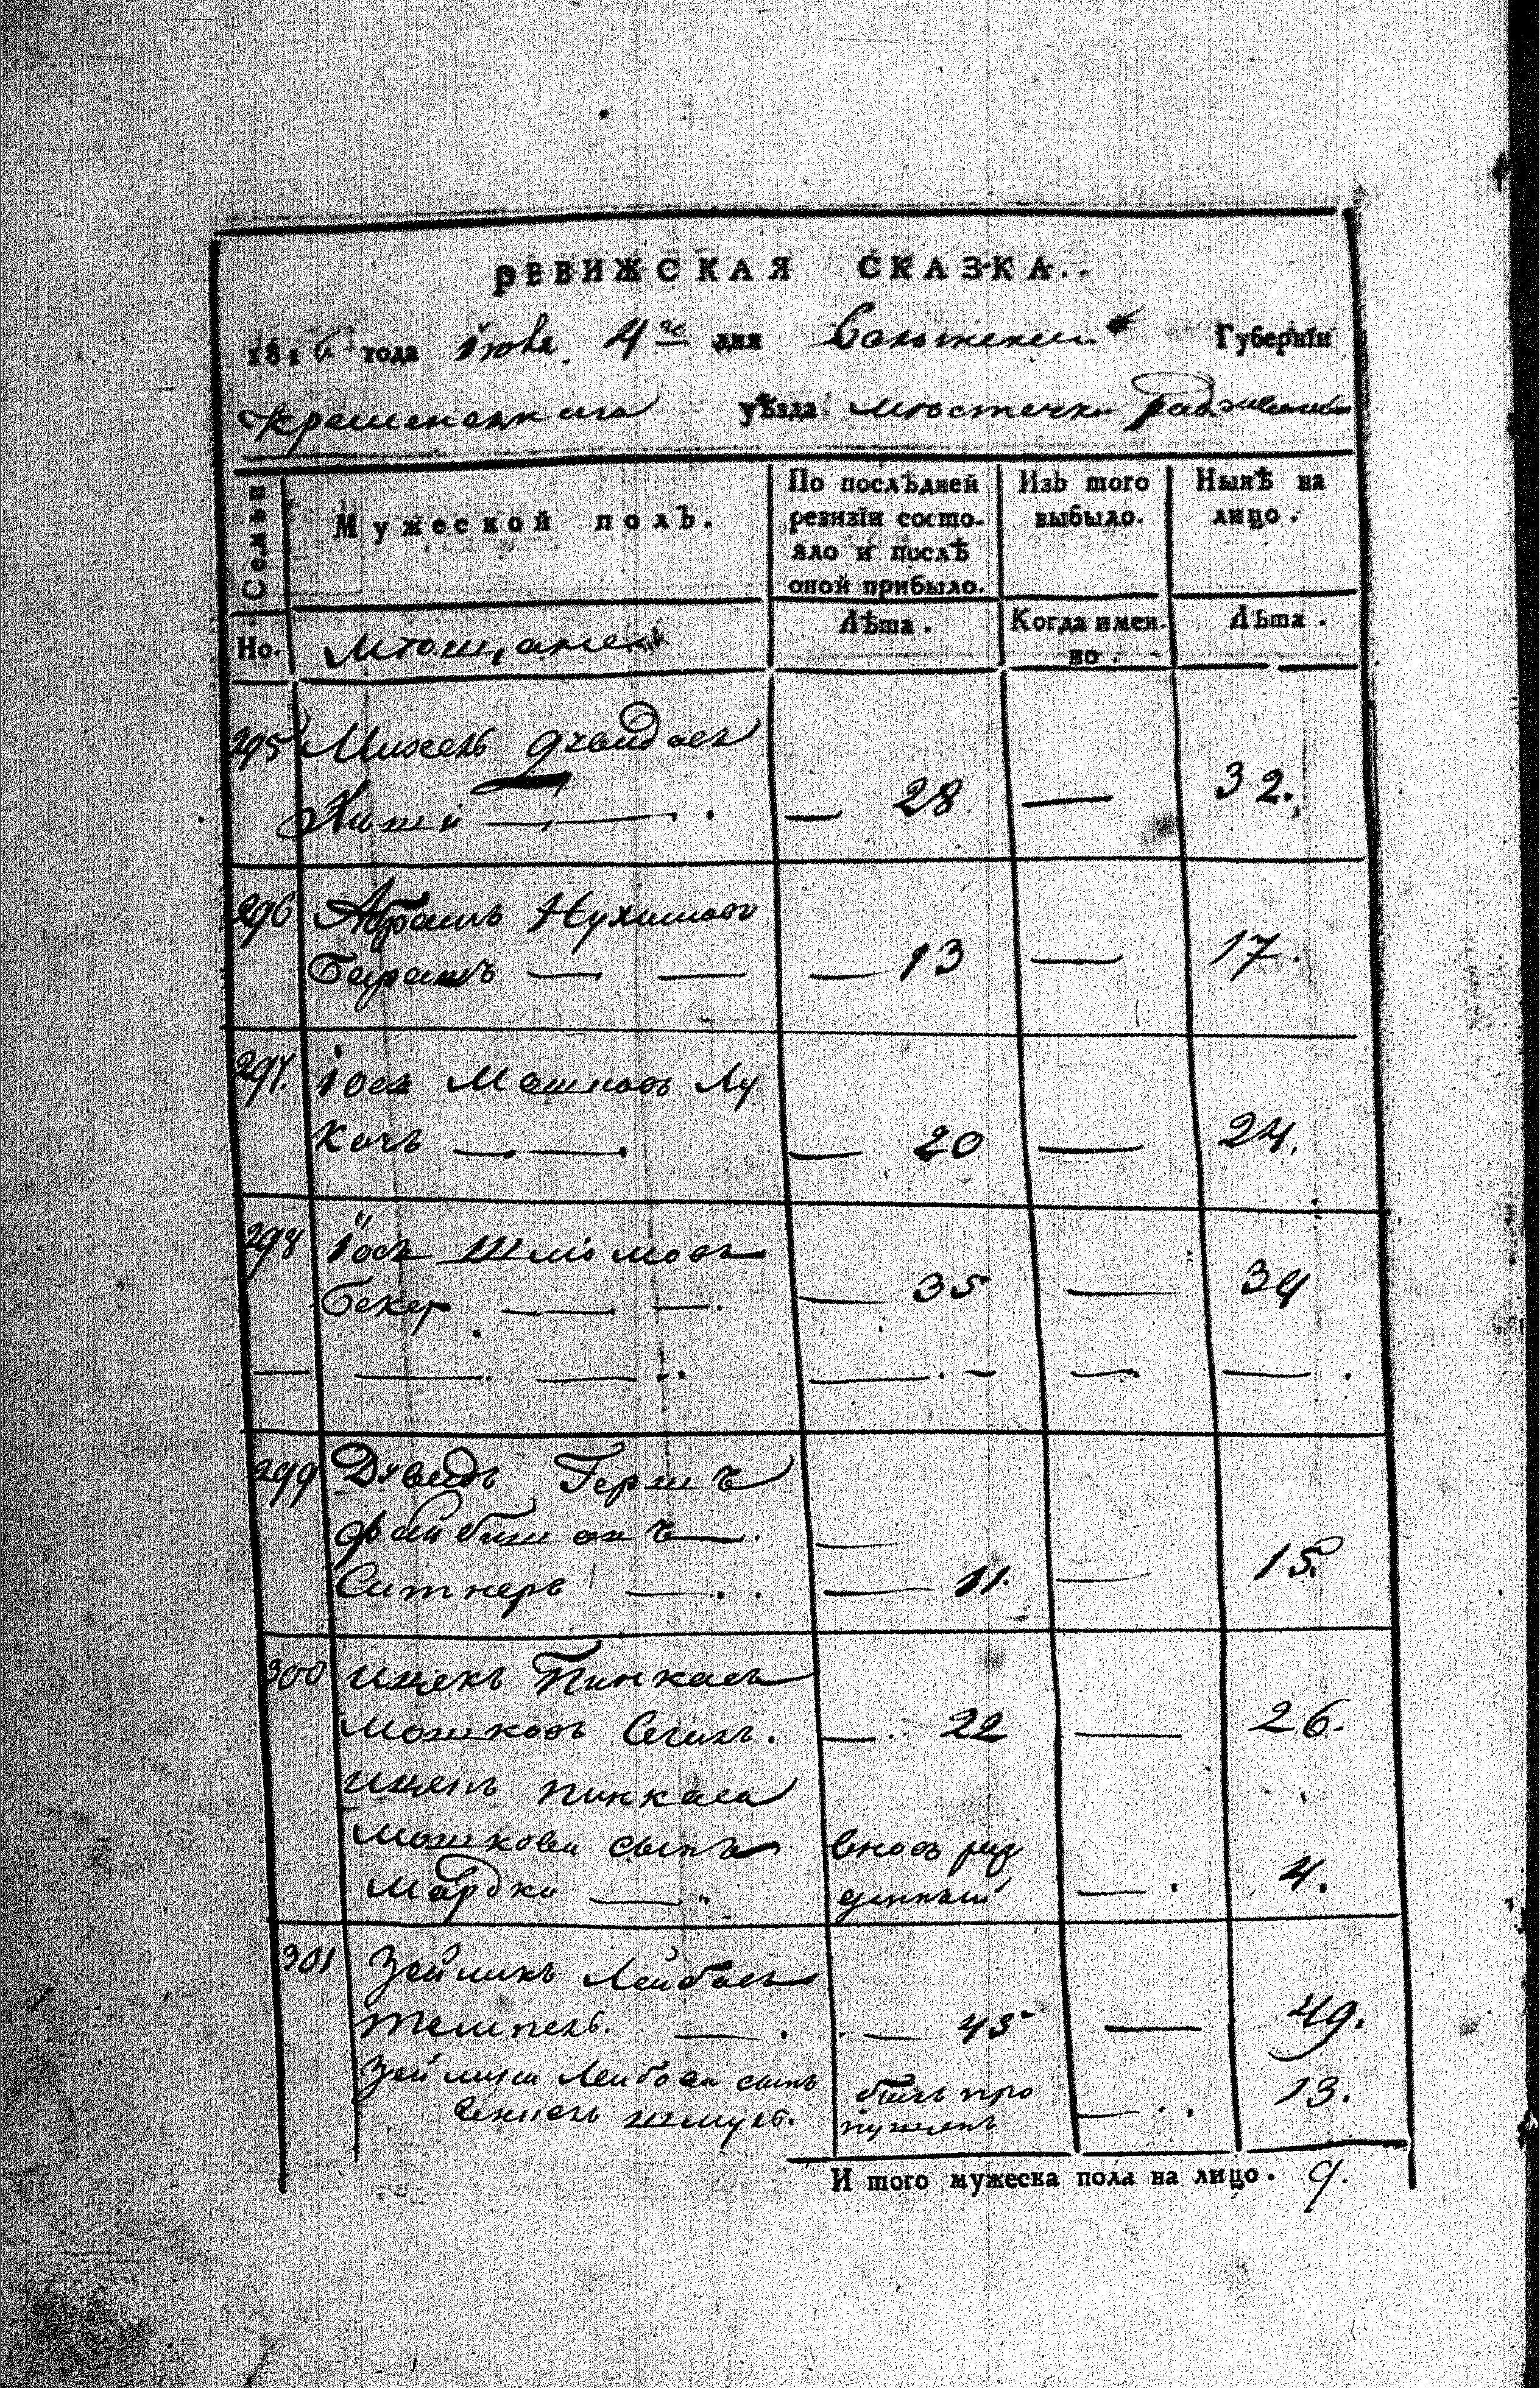 РЕВИЖСКАЯ СКАЗКА..
1816 года Iюня 4го дня Волынской Губернїи
Кременецкаго уѣзда мѣстечка Радзивилова
Семьи
Мужеской полъ.
По послѣдней ревизїи состояло и послѣ оной прибыло.
Изъ того выбыло.
Нынѣ на лицо.
Но.
Мѣщанеᲂ
Лѣта.
Когда имен-но.
Лѣта.
295 Михель
28 — 32.
296 Абрамъ Нухимовъ
— — — 13 — 17.
297. Iось Мошковъ Лу
качъ — — — 20 — 24.
298 Iось Шлiомовъ
Бекер — — — 35 — 39
— — — — — — —
299 Давидъ Гершъ
—
Ситнеръ — — 11. — 15.
300 Ицекъ Пинкасъ
Мошковъ — 22 — 26.
Пинкаса
Мошкова сынъ вновь рож
Мордко — денный — 4.
301 Зейликъ Лейбовъ
— — 45 — 49.
Зейлика Лейбова сынъ былъ про
шмуль. пущенъ — 13.
И того мужеска пола на лицо. 9.